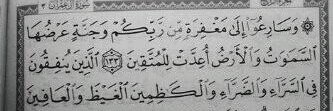 وَسَارِعُوٓا۟ إِلَىٰ مَغْفِرَةٍ مِّن رَّبِّكُمْ وَجَنَّةٍ عَرْضُهَا
ٱلسَّمَٰوَٰتُ وَٱلْأَرْضُ أُعِدَّتْ لِلْمُتَّقِينَ ١٣٣ ٱلَّذِينَ يُنفِقُونَ
فِى ٱلسَّرَّآءِ وَٱلضَّرَّآءِ وَٱلْكَٰظِمِينَ ٱلْغَيْظَ وَٱلْعَافِينَ